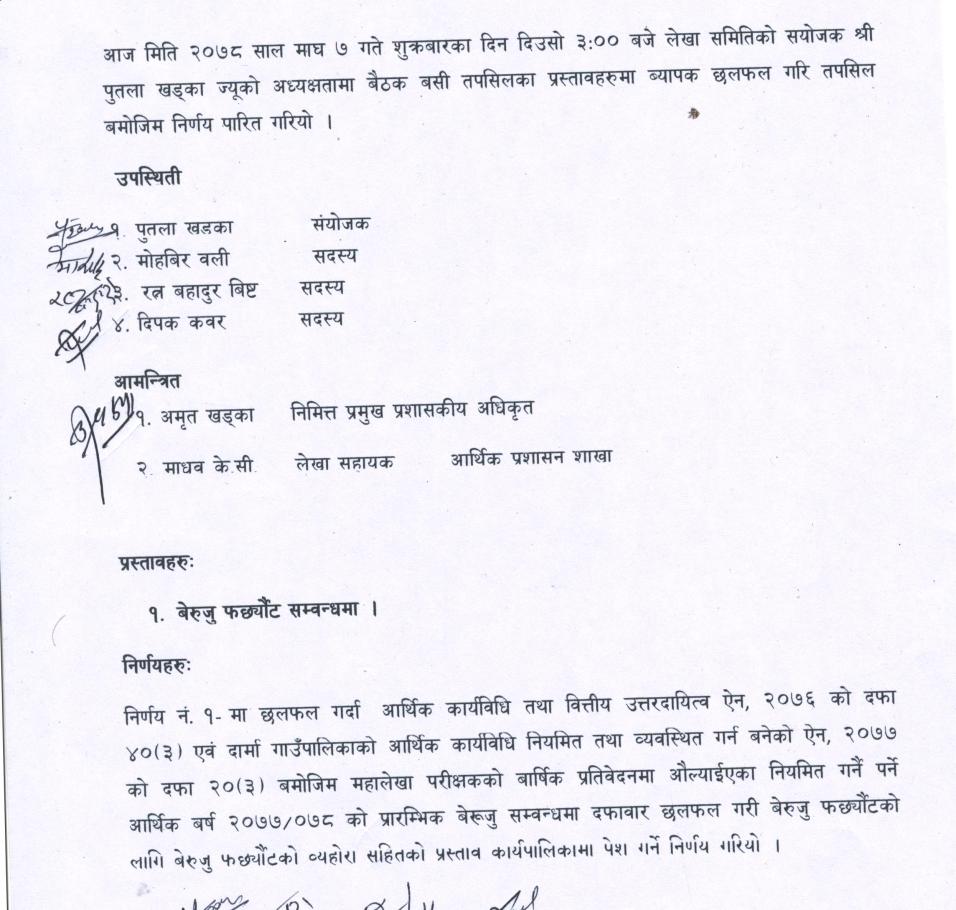 आज मिति २०७८ साल माघ ७ गते शुक्रबारका दिन दिउसो ३:०० बजे लेखा समितिको सयोजक श्री
पुतला खड्का ज्यूको अध्यक्षतामा बैठक बसी तपसिलका प्रस्तावहरुमा ब्यापक छलफल गरि तपसिल
बमोजिम निर्णय पारित गरियो ।
उपस्थिती
१. पुतला खडका संयोजक
२. मोहबिर वली सदस्य
३. रत्न बहादुर बिष्ट सदस्य
४. दिपक कवर सदस्य
आमन्त्रित
१. अमृत खड्का निमित्त प्रमुख प्रशासकीय अधिकृत
२. माधव के.सी. लेखा सहायक आर्थिक प्रशासन शाखा
प्रस्तावहरुः
१. बेरुजु फर्छ्यौट सम्वन्धमा ।
निर्णयहरुः
निर्णय नं. १- मा छलफल गर्दा आर्थिक कार्यविधि तथा वित्तीय उत्तरदायित्व ऐन, २०७६ को दफा
४०(३) एवं दार्मा गाउँपालिकाको आर्थिक कार्यविधि नियमित तथा व्यवस्थित गर्न बनेको ऐन, २०७७
को दफा २०(३) बमोजिम महालेखा परीक्षकको बार्षिक प्रतिवेदनमा औल्याईएका नियमित गर्नै पर्ने
आर्थिक बर्ष २०७७/०७८ को प्रारम्भिक बेरूजु सम्वन्धमा दफावार छलफल गरी बेरुजु फर्छ्यौटको
लागि बेरुजु फर्छ्यौटको व्यहोरा सहितको प्रस्ताव कार्यपालिकामा पेश गर्ने निर्णय गरियो ।